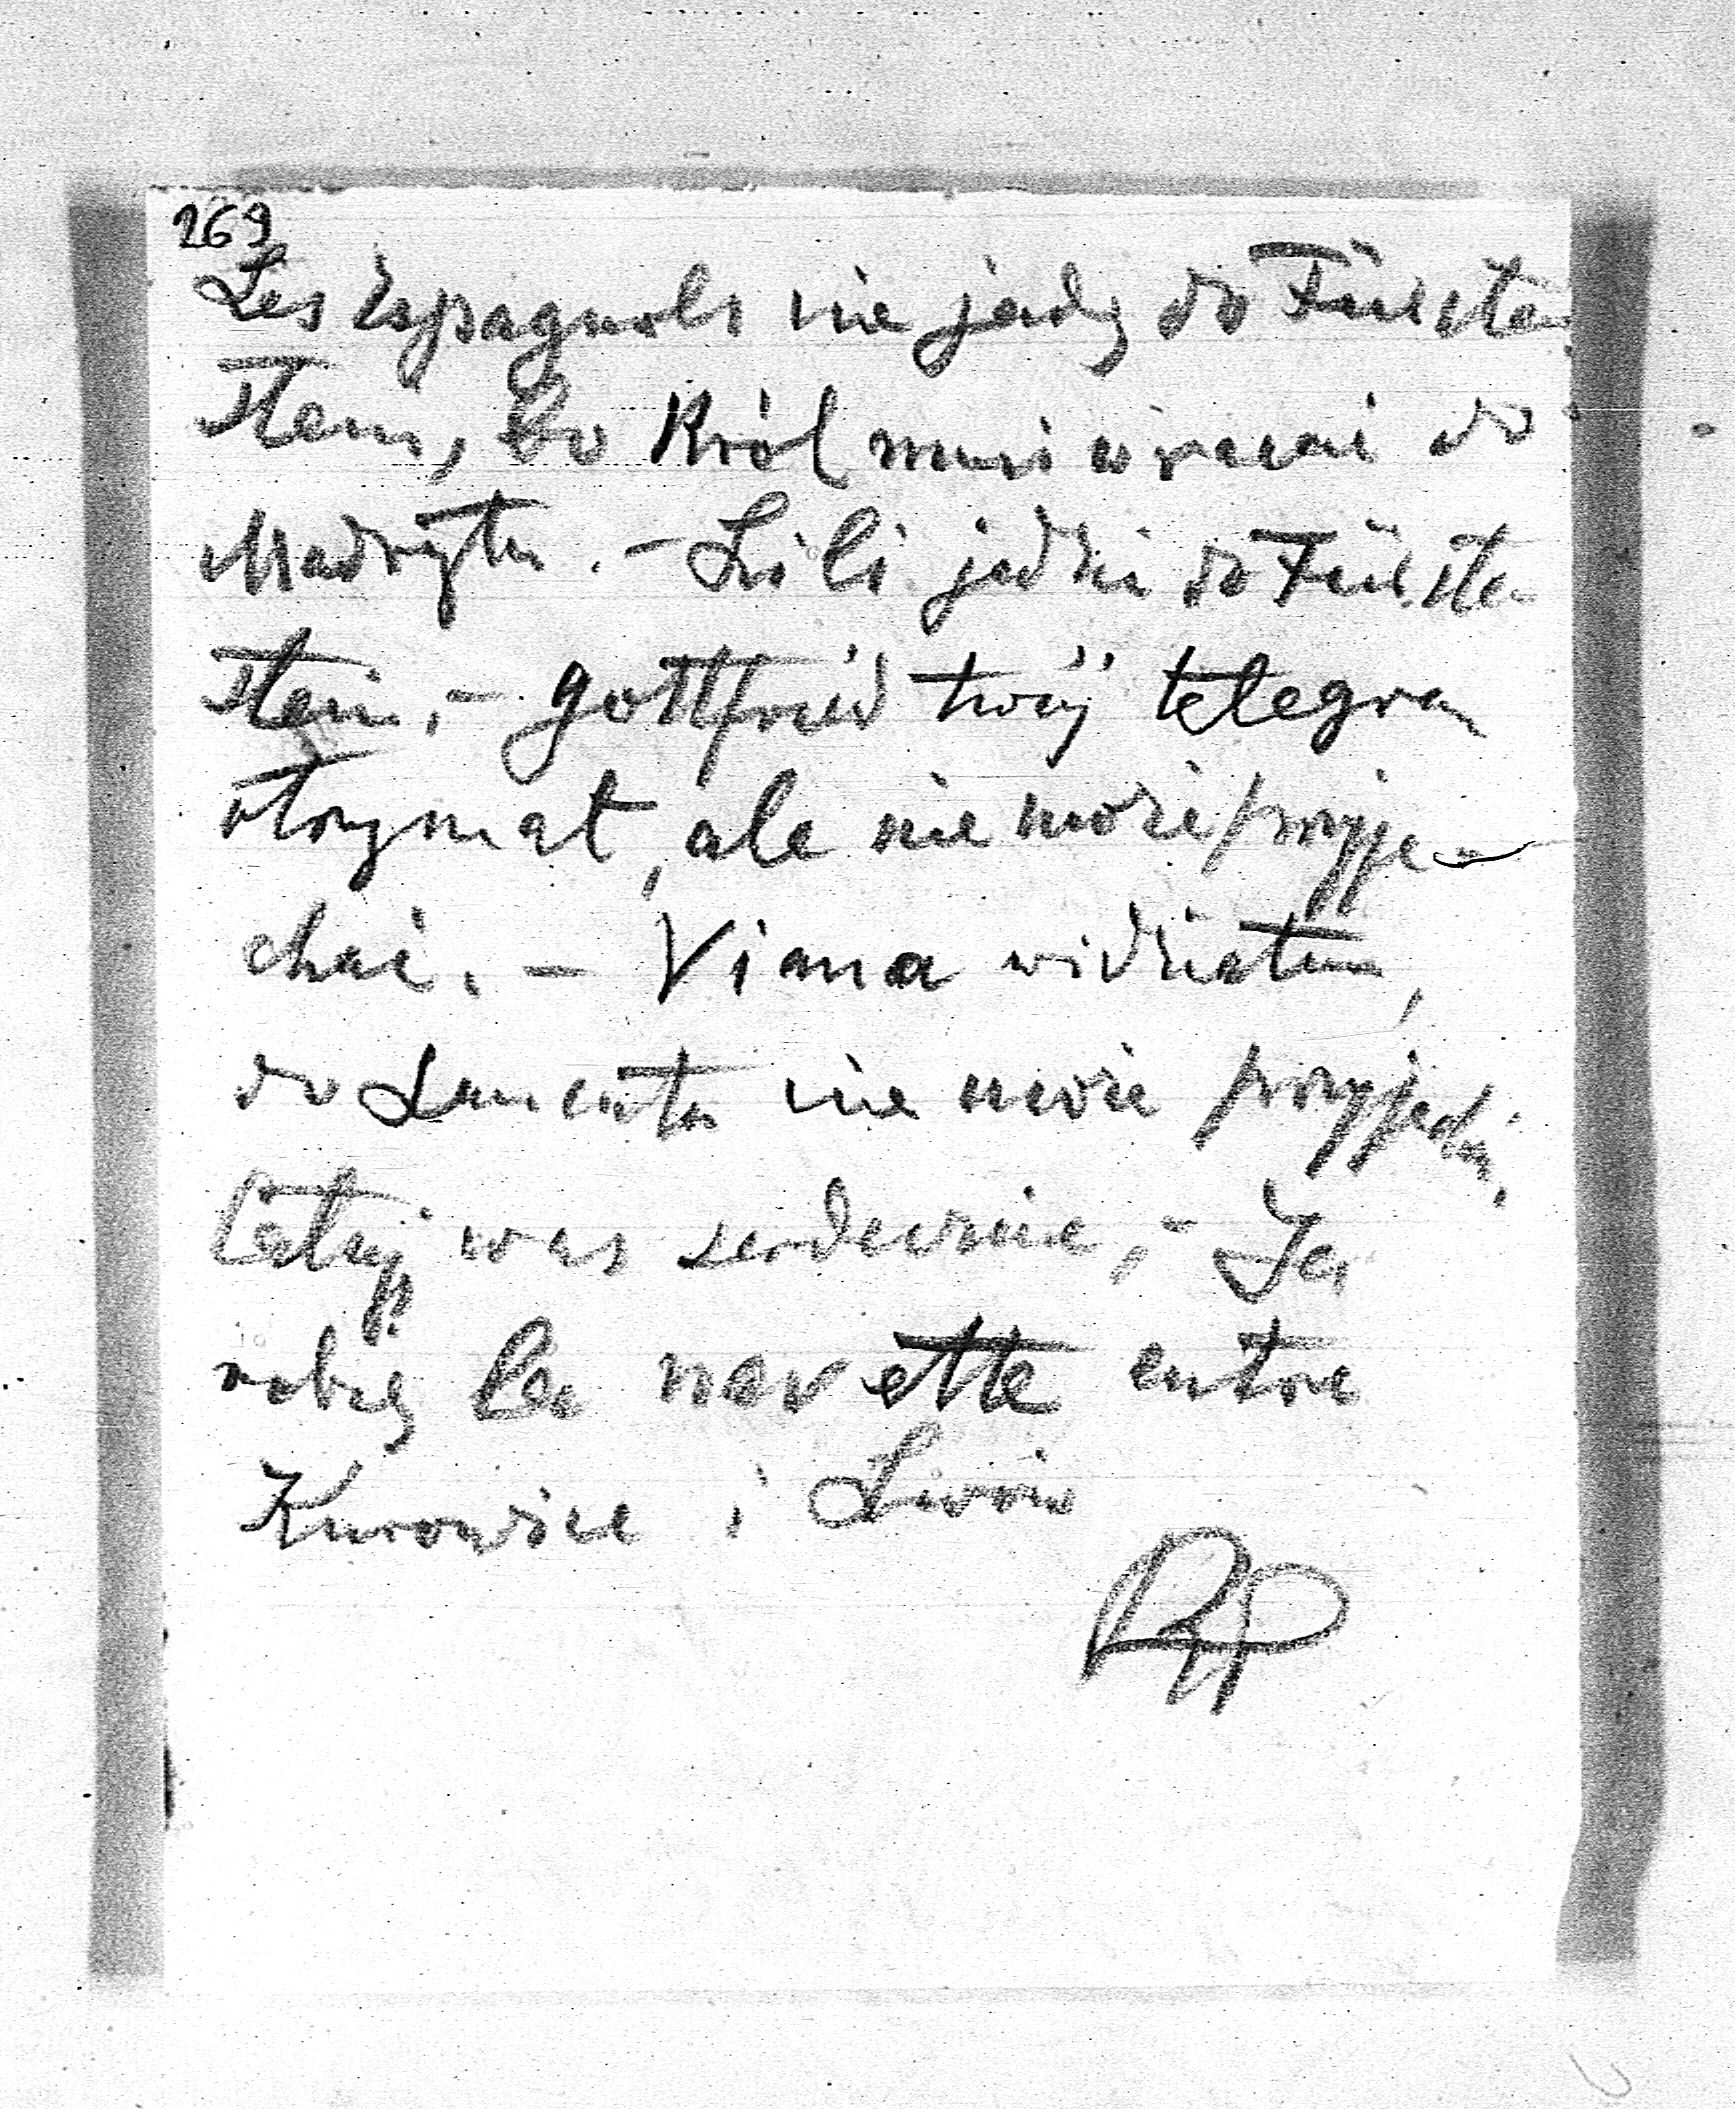 269
Les Espagnols nie jadą do Fürsten
stein, bo Król musi wracać do
Madrytu. - Lili jedzie do Fürsten
stein. - Gottfried twój telegram
otrzymał, ale nie może przyje-
chać. - Viana widziałem,
do Łańcuta nie może przyjechać,
Całuję was serdecznie, - Ja
robię la navette entre
Kurowice i Lwów